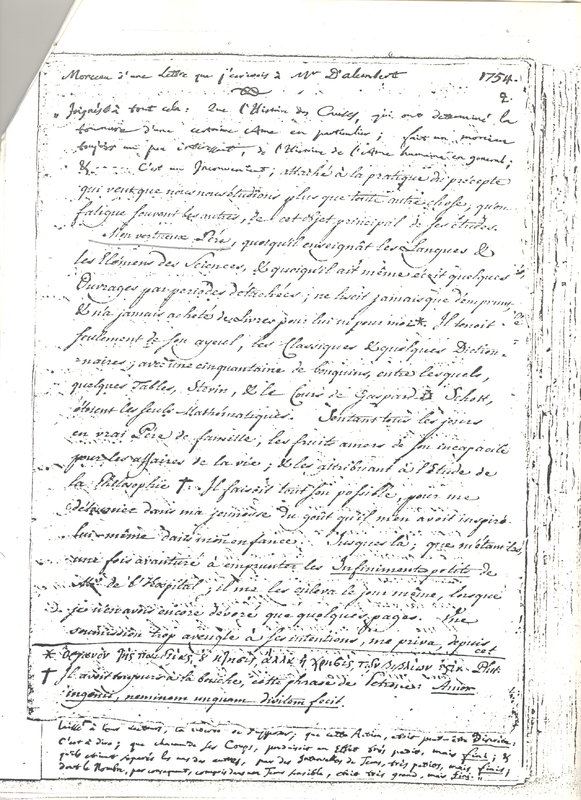 Morceau d'une Lettre que j'ecrivois à Mr. D'alembert 1754.
2.
„ Joignés à tout cela: Que l'Histoire des Causes, qui ont determiné la
tournure d'une certaine Ame en particulier; fait un morceau
toujours un peu intéressant, de l'Histoire de l'Ame humaine en general;
&. C'est un Inconvenient; attaché à la pratique du précepte
qui veut que nous nous étudions plus que toute autre chose, qu'on
fatigue souvent les autres, de cet objet principal de ses études.
Mon vertueux Pére, quoiqu'il enseignât les Langues &
les Elémens des Sciences, & quoiqu'il ait même écrit quelques
Ouvrages par periodes detachées; ne lisoit jamais que d'emprunt,
& n'a jamais acheté de Livres pour lui ni pour moi*. Il tenoit
seulement de son ayeul, les Classiques & quelques Diction-
naires; avec une cinquantaine de bouquins, entre lesquels,
quelques Tables, Stevin, & le Cours de Gaspard Schott,
étoient les seuls Mathématiques. Sentant tous les jours
en vrai Pére de famille, les fruits amers de son incapacité
pour les affaires de la vie; & les attribuant à l'étude de
la Philosophie †. Il faisoit tout son possible, pour me
dans ma jeunesse du goût qu'il m'en avoit inspiré
lui-même dans mon enfance. Jusques là; que m'étant
une fois avanturé à emprunter les Infiniments petits de
Mr. de l'Hospital; il me les enleva le jour même, lorsque
je n'en avois encore devoré que quelques pages. Une
soumission trop aveugle à ses intentions, me priva, depuis
cet
* Plut.
† Il avoit toujours à la bouche, cette phrase de Sénéque: Amor
ingenii, neminem unquam divitem fecit.
laissé à leur que cette Action, étoit peut-être Discrète,
C'est à dire; que chacun de ses Corps, produisoit un Effet très petit, mais fini; &
qu'ils étoient separés les uns des autres, par des Intervalles de Tems, très petits, mais finis,
dont le Nombre, par consequent, compris dans un Tems sensible, étoit très grand, mais fini.